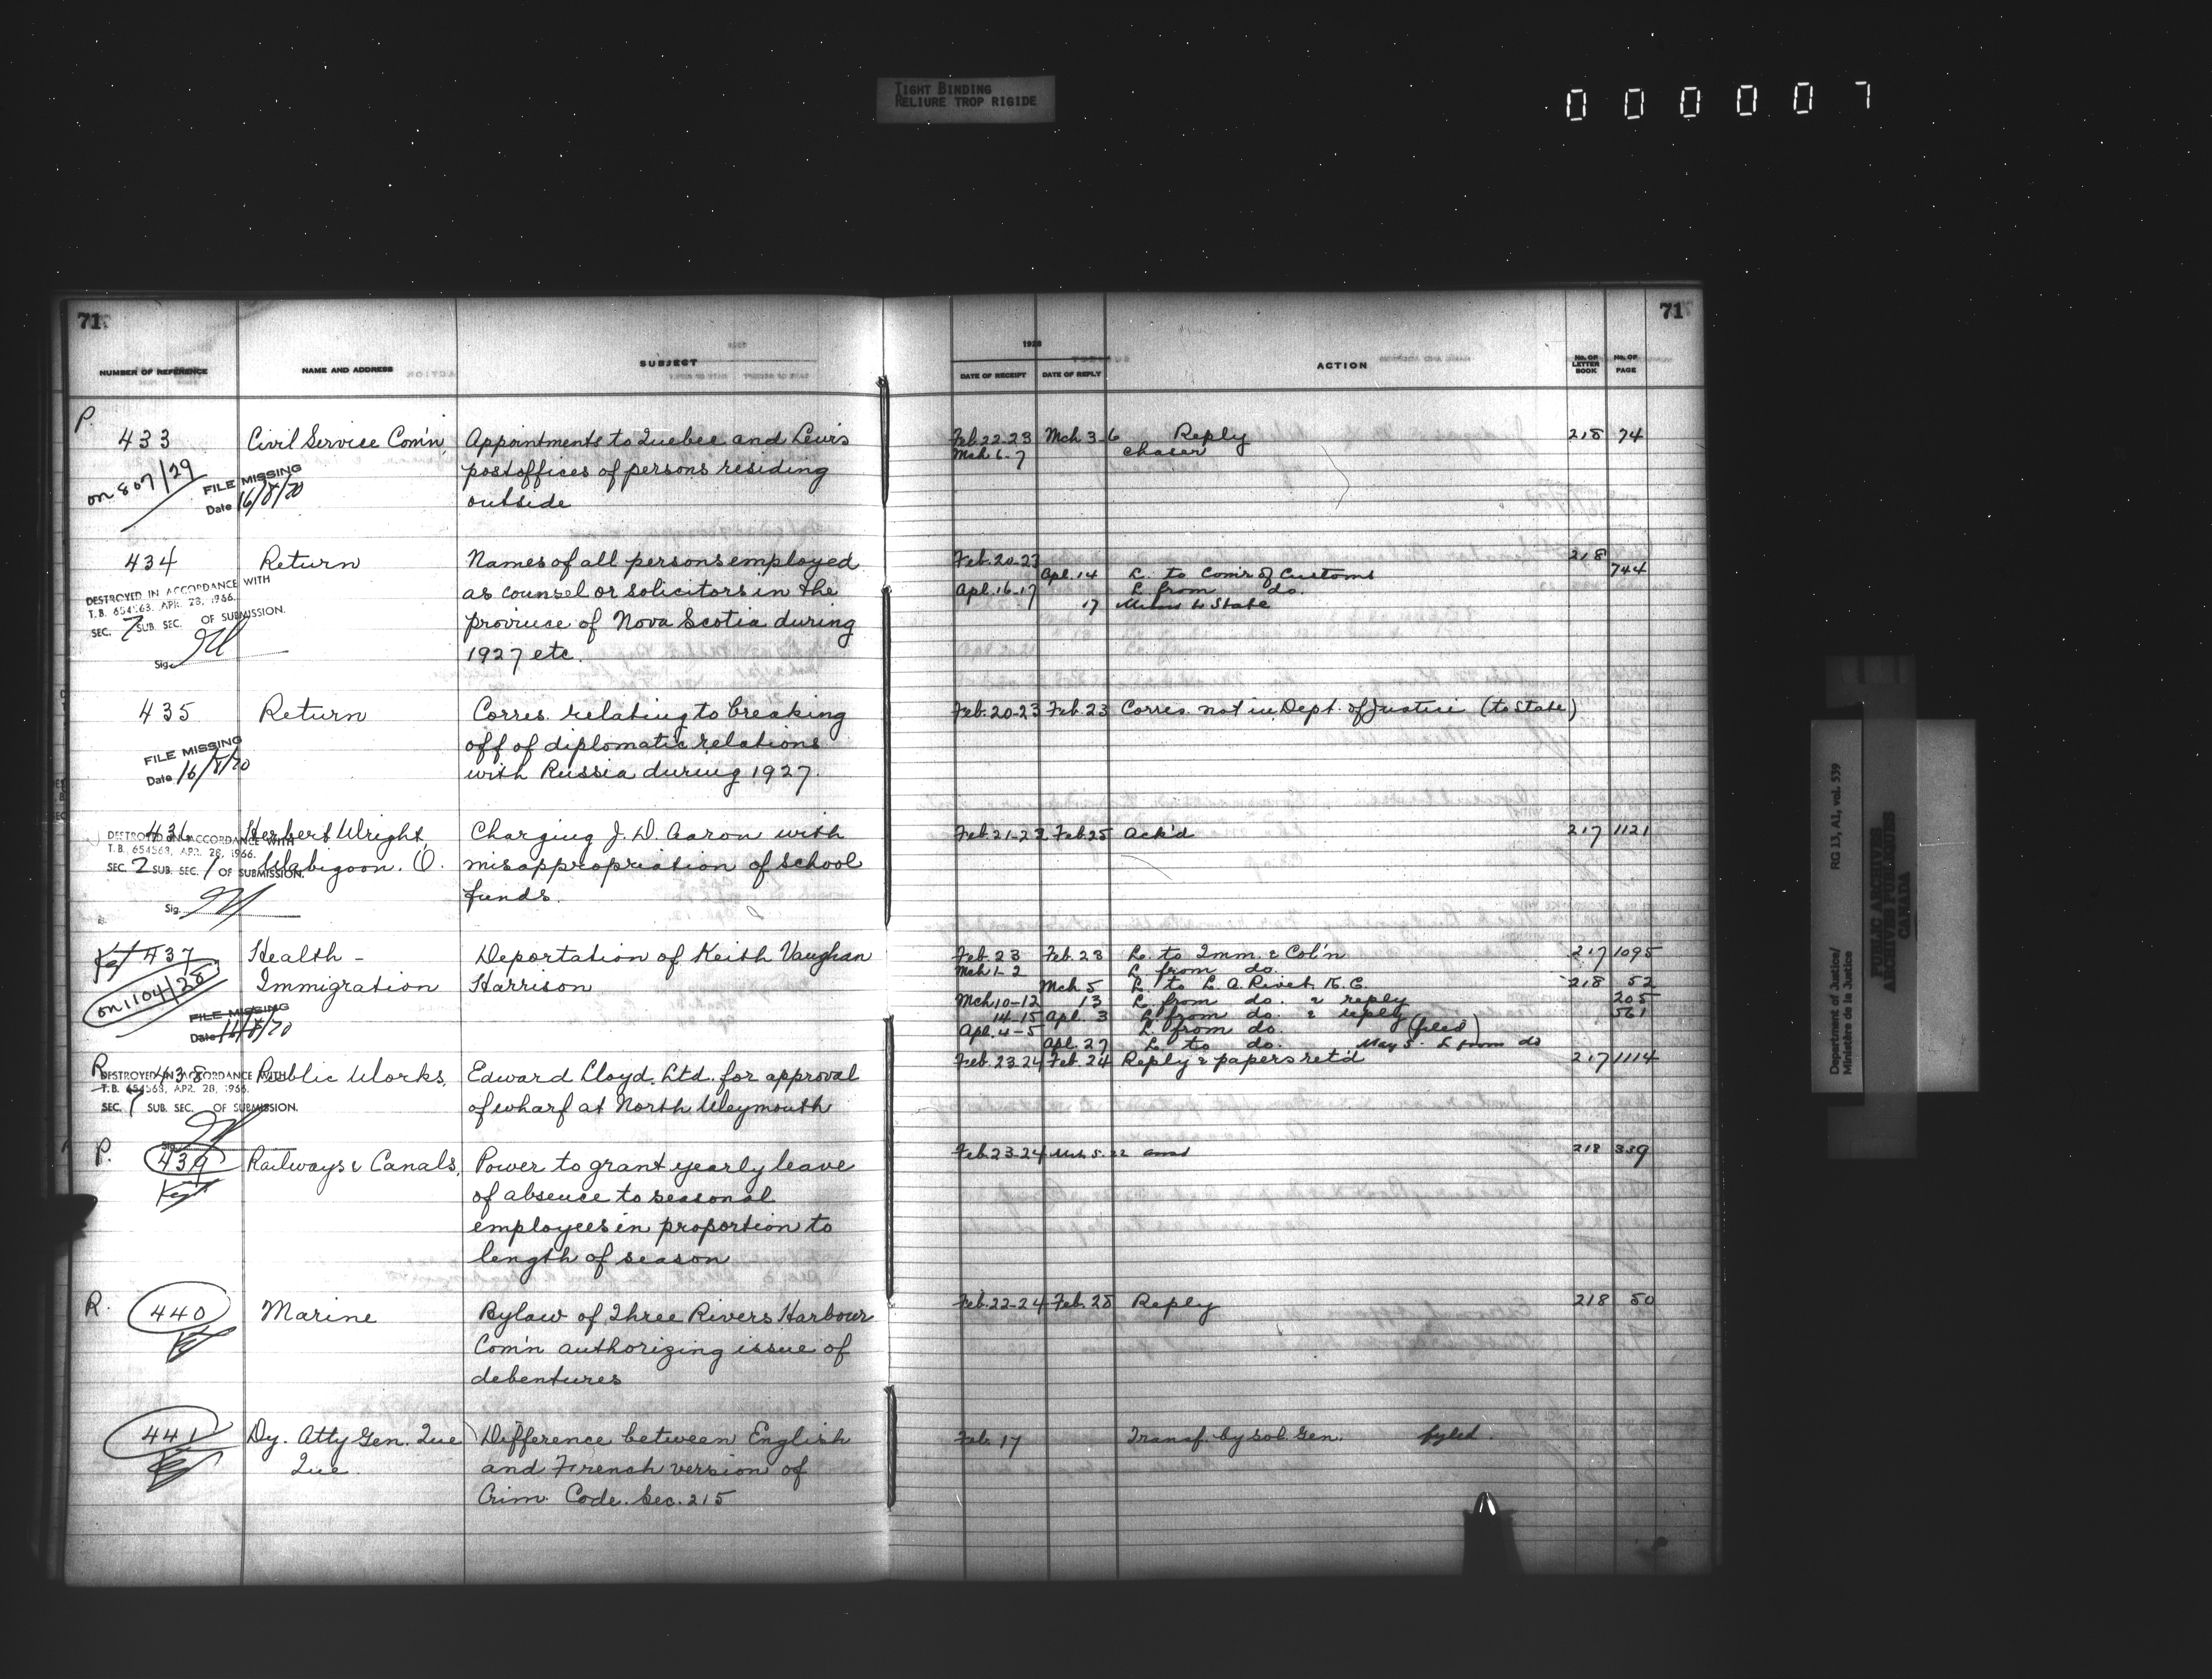 TIGHT BINDING
RELIURE TROP RIGIDE
000007
71
71
NUMBER OF REFERENCE NAME AND ADDRESS SUBJECT
1928
DATE OF RECEIPT DATE OF REPLY ACTION No. OF LETTER BOOK No. OF PAGE
P.
433 Civil Service Com'n Appointments to Quebec and Levis
postoffices of persons residing
outside
on 807/29
FILE MISSING
Date 16/8/70
Feb. 22-23 Mch 3-6 Reply 218 74
Mch 6-7 chaser
434 Return Names of all persons employed
as counsel or solicitors in the
province of Nova Scotia during
1927 etc.
DESTROYED IN ACCORDANCE WITH
T.B. 654568, APR. 28, 1966.
SEC. 7 SUB. SEC. OF SUBMISSION.
Sig.
Feb. 20-23 218
Apl. 14 L. to Com'r of Customs 744
Apl. 16-17 L from do.
17 to State
435 Return Corres. relating to breaking
off of diplomatic relations
with Russia during 1927.
FILE MISSING
Date 16/8/70
Feb. 20-23 Feb. 23 Corres. not in Dept. of Justice (to State)
436 Herbert Wright, Charging J. D. Aaron with
Wabigoon. O. misappropriation of school
funds.
DESTROYED IN ACCORDANCE WITH
T.B. 654568, APR. 28, 1966.
SEC. 2 SUB. SEC. 1 OF SUBMISSION.
Sig.
Feb. 21-23 Feb 25 Ack'd 217 1121
437 Health - Deportation of Keith Vaughan
Immigration Harrison
on 1104/28
FILE MISSING
Date 14/8/70
Feb. 23 Feb. 23 L. to Imm. & Col'n 217 1095
Mch 1-2 L from do.
Mch 5 L. to L. A. Rivet. K. C. 218 52
Mch 10-12 13 L. from do. & reply 205
14-15 Apl. 3 L. from do. & reply 561
Apl. 4-5 L. from do. (filed)
Apl. 27 L. to do. May 5. L from do
R. 438 Public Works, Edward Lloyd. Ltd. for approval
of wharf at North Weymouth
DESTROYED IN ACCORDANCE WITH
T.B. 654568, APR. 28, 1966.
SEC. 1 SUB. SEC. OF SUBMISSION.
Sig.
Feb. 23-24 Feb. 24 Reply & papers ret'd 217 1114
P. 439 Railways & Canals, Power to grant yearly leave
of absence to seasonal
employees in proportion to
length of season
Feb. 23-24 Mch. 5. 22 218 339
R. 440 Marine Bylaw of Three Rivers Harbour
Com'n authorizing issue of
debentures
Feb. 22-24 Feb. 28 Reply 218 50
441 Dy. Atty Gen. Que Difference between English
Que. and French version of
Crim. Code. Sec. 215
Feb. 17 Transf. by Sol. Gen. fyled.
Department of Justice/
Ministère de la Justice
RG 13, A1, vol. 539
PUBLIC ARCHIVES
ARCHIVES PUBLIQUES
CANADA